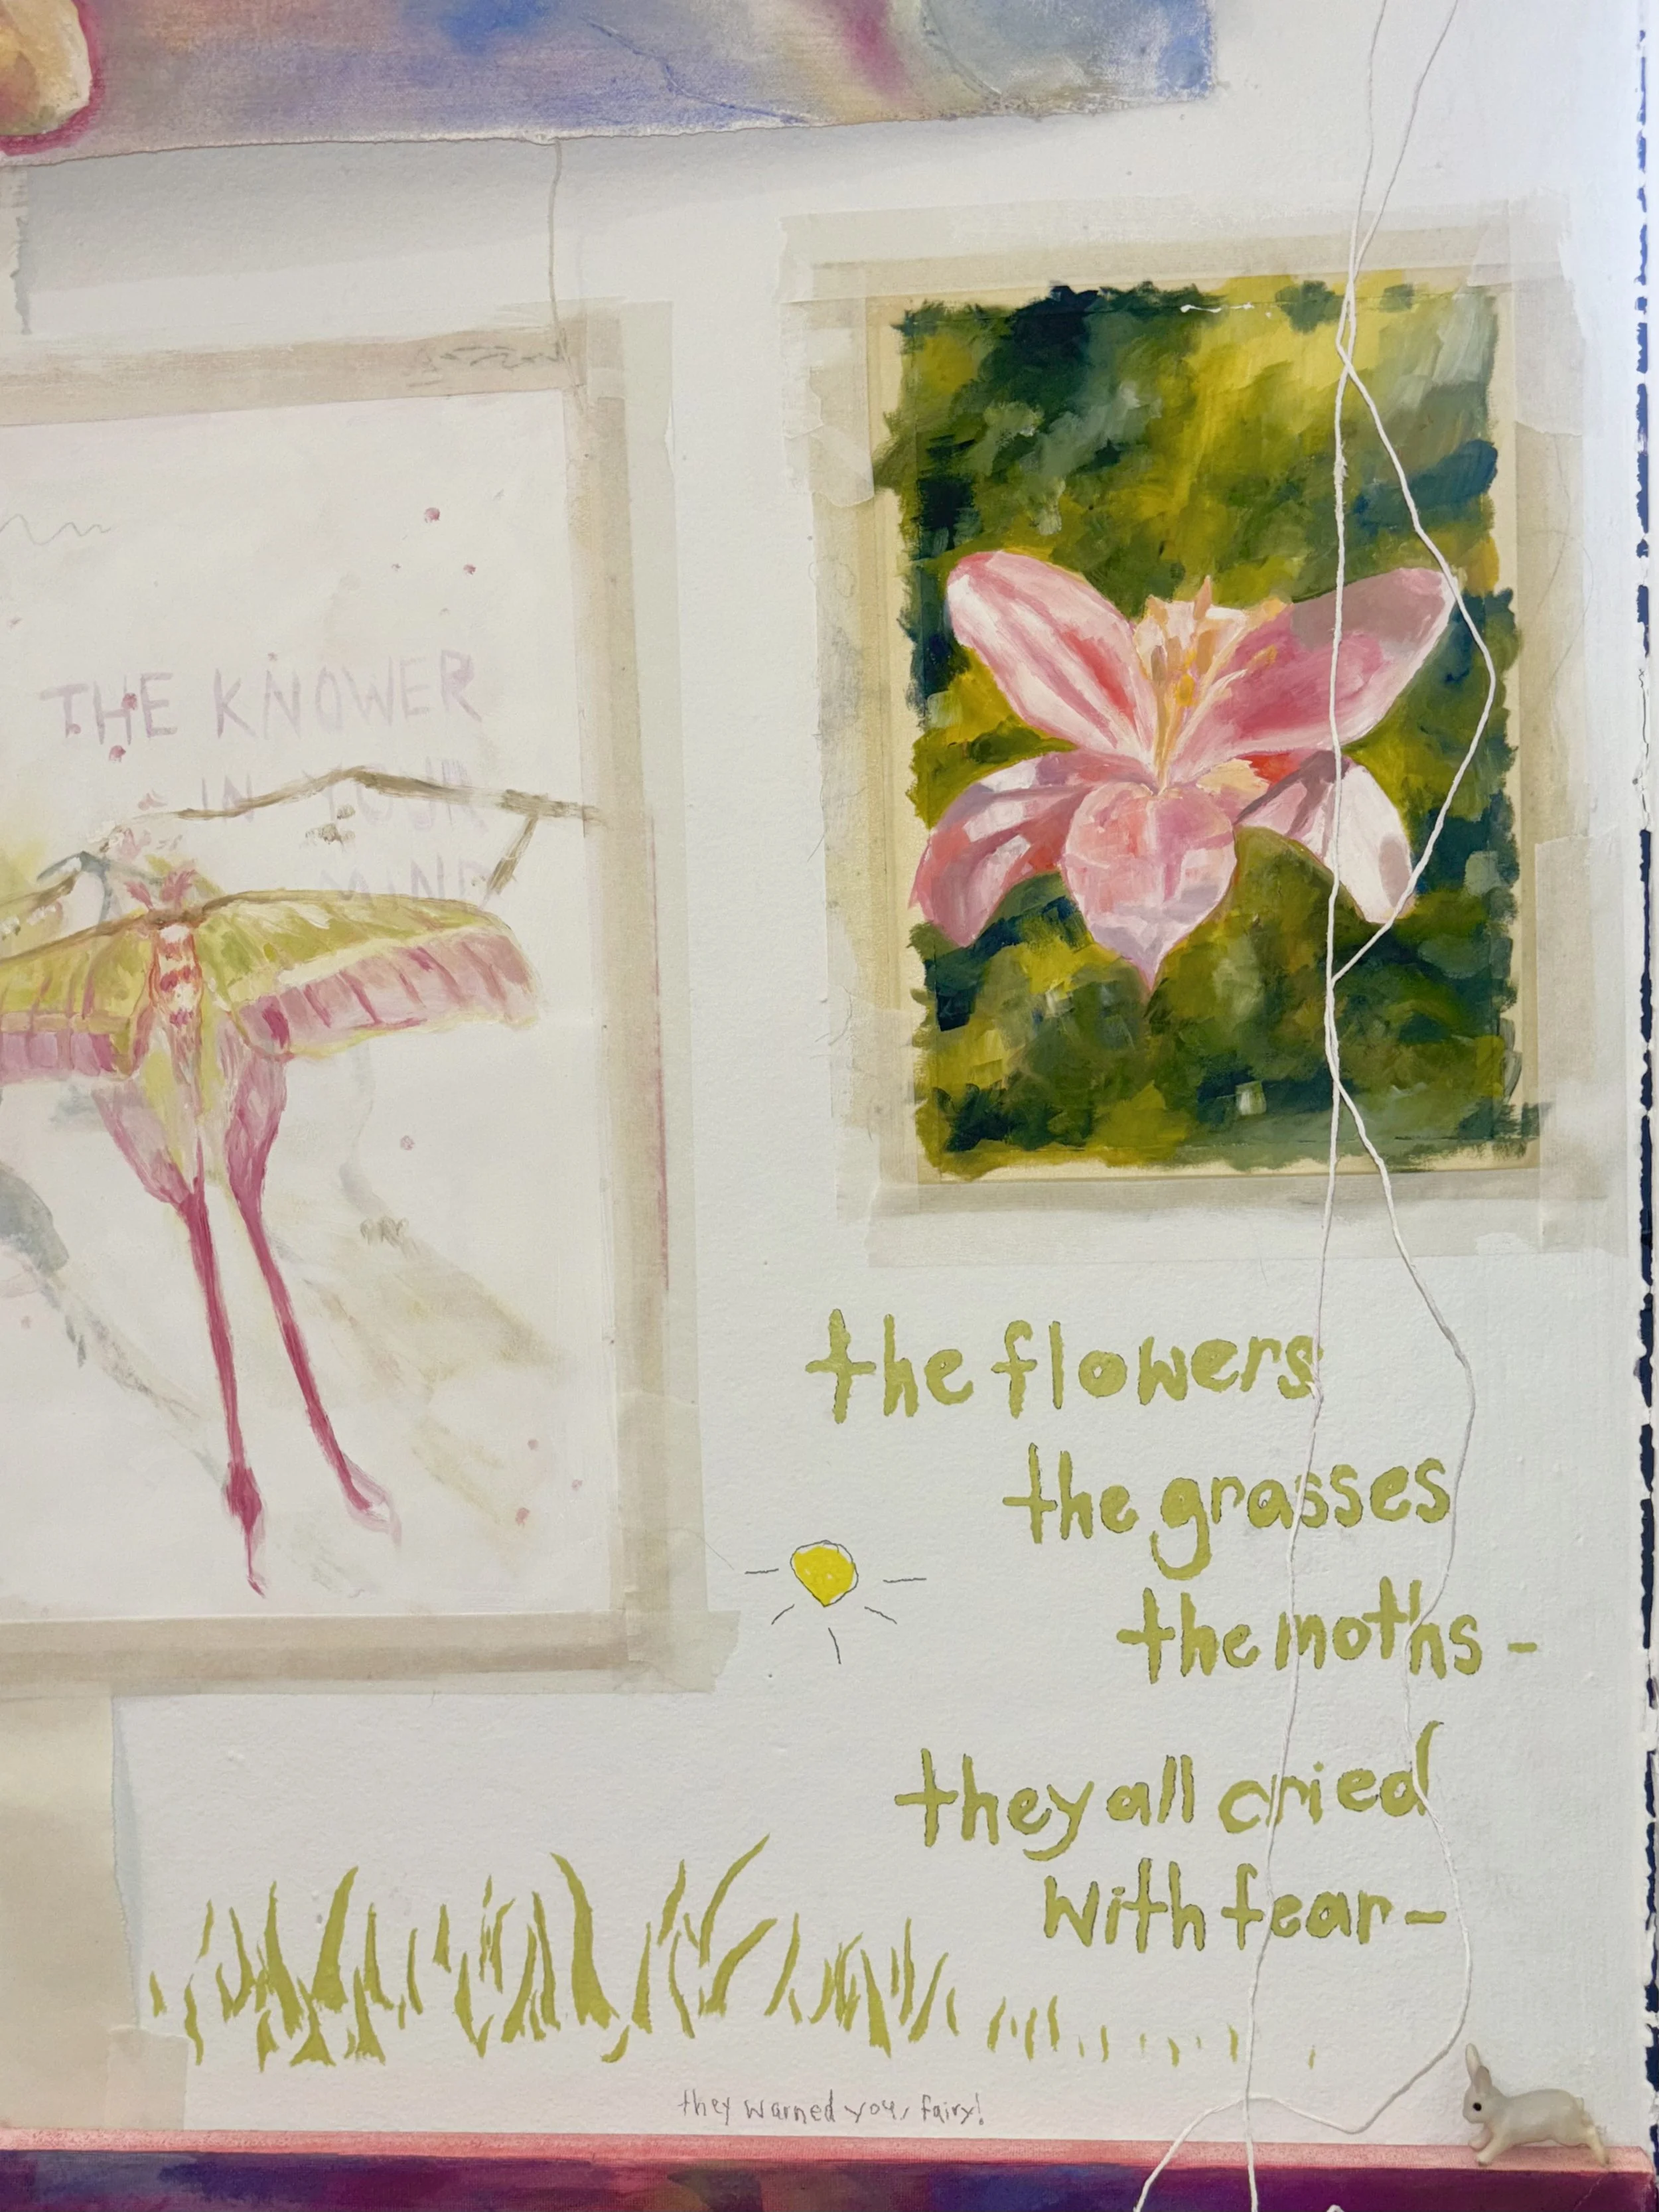 THE KNOWER
IN YOUR
MIND
the flowers
the grasses
the moths -
they all cried
with fear -
they warned you, fairy!